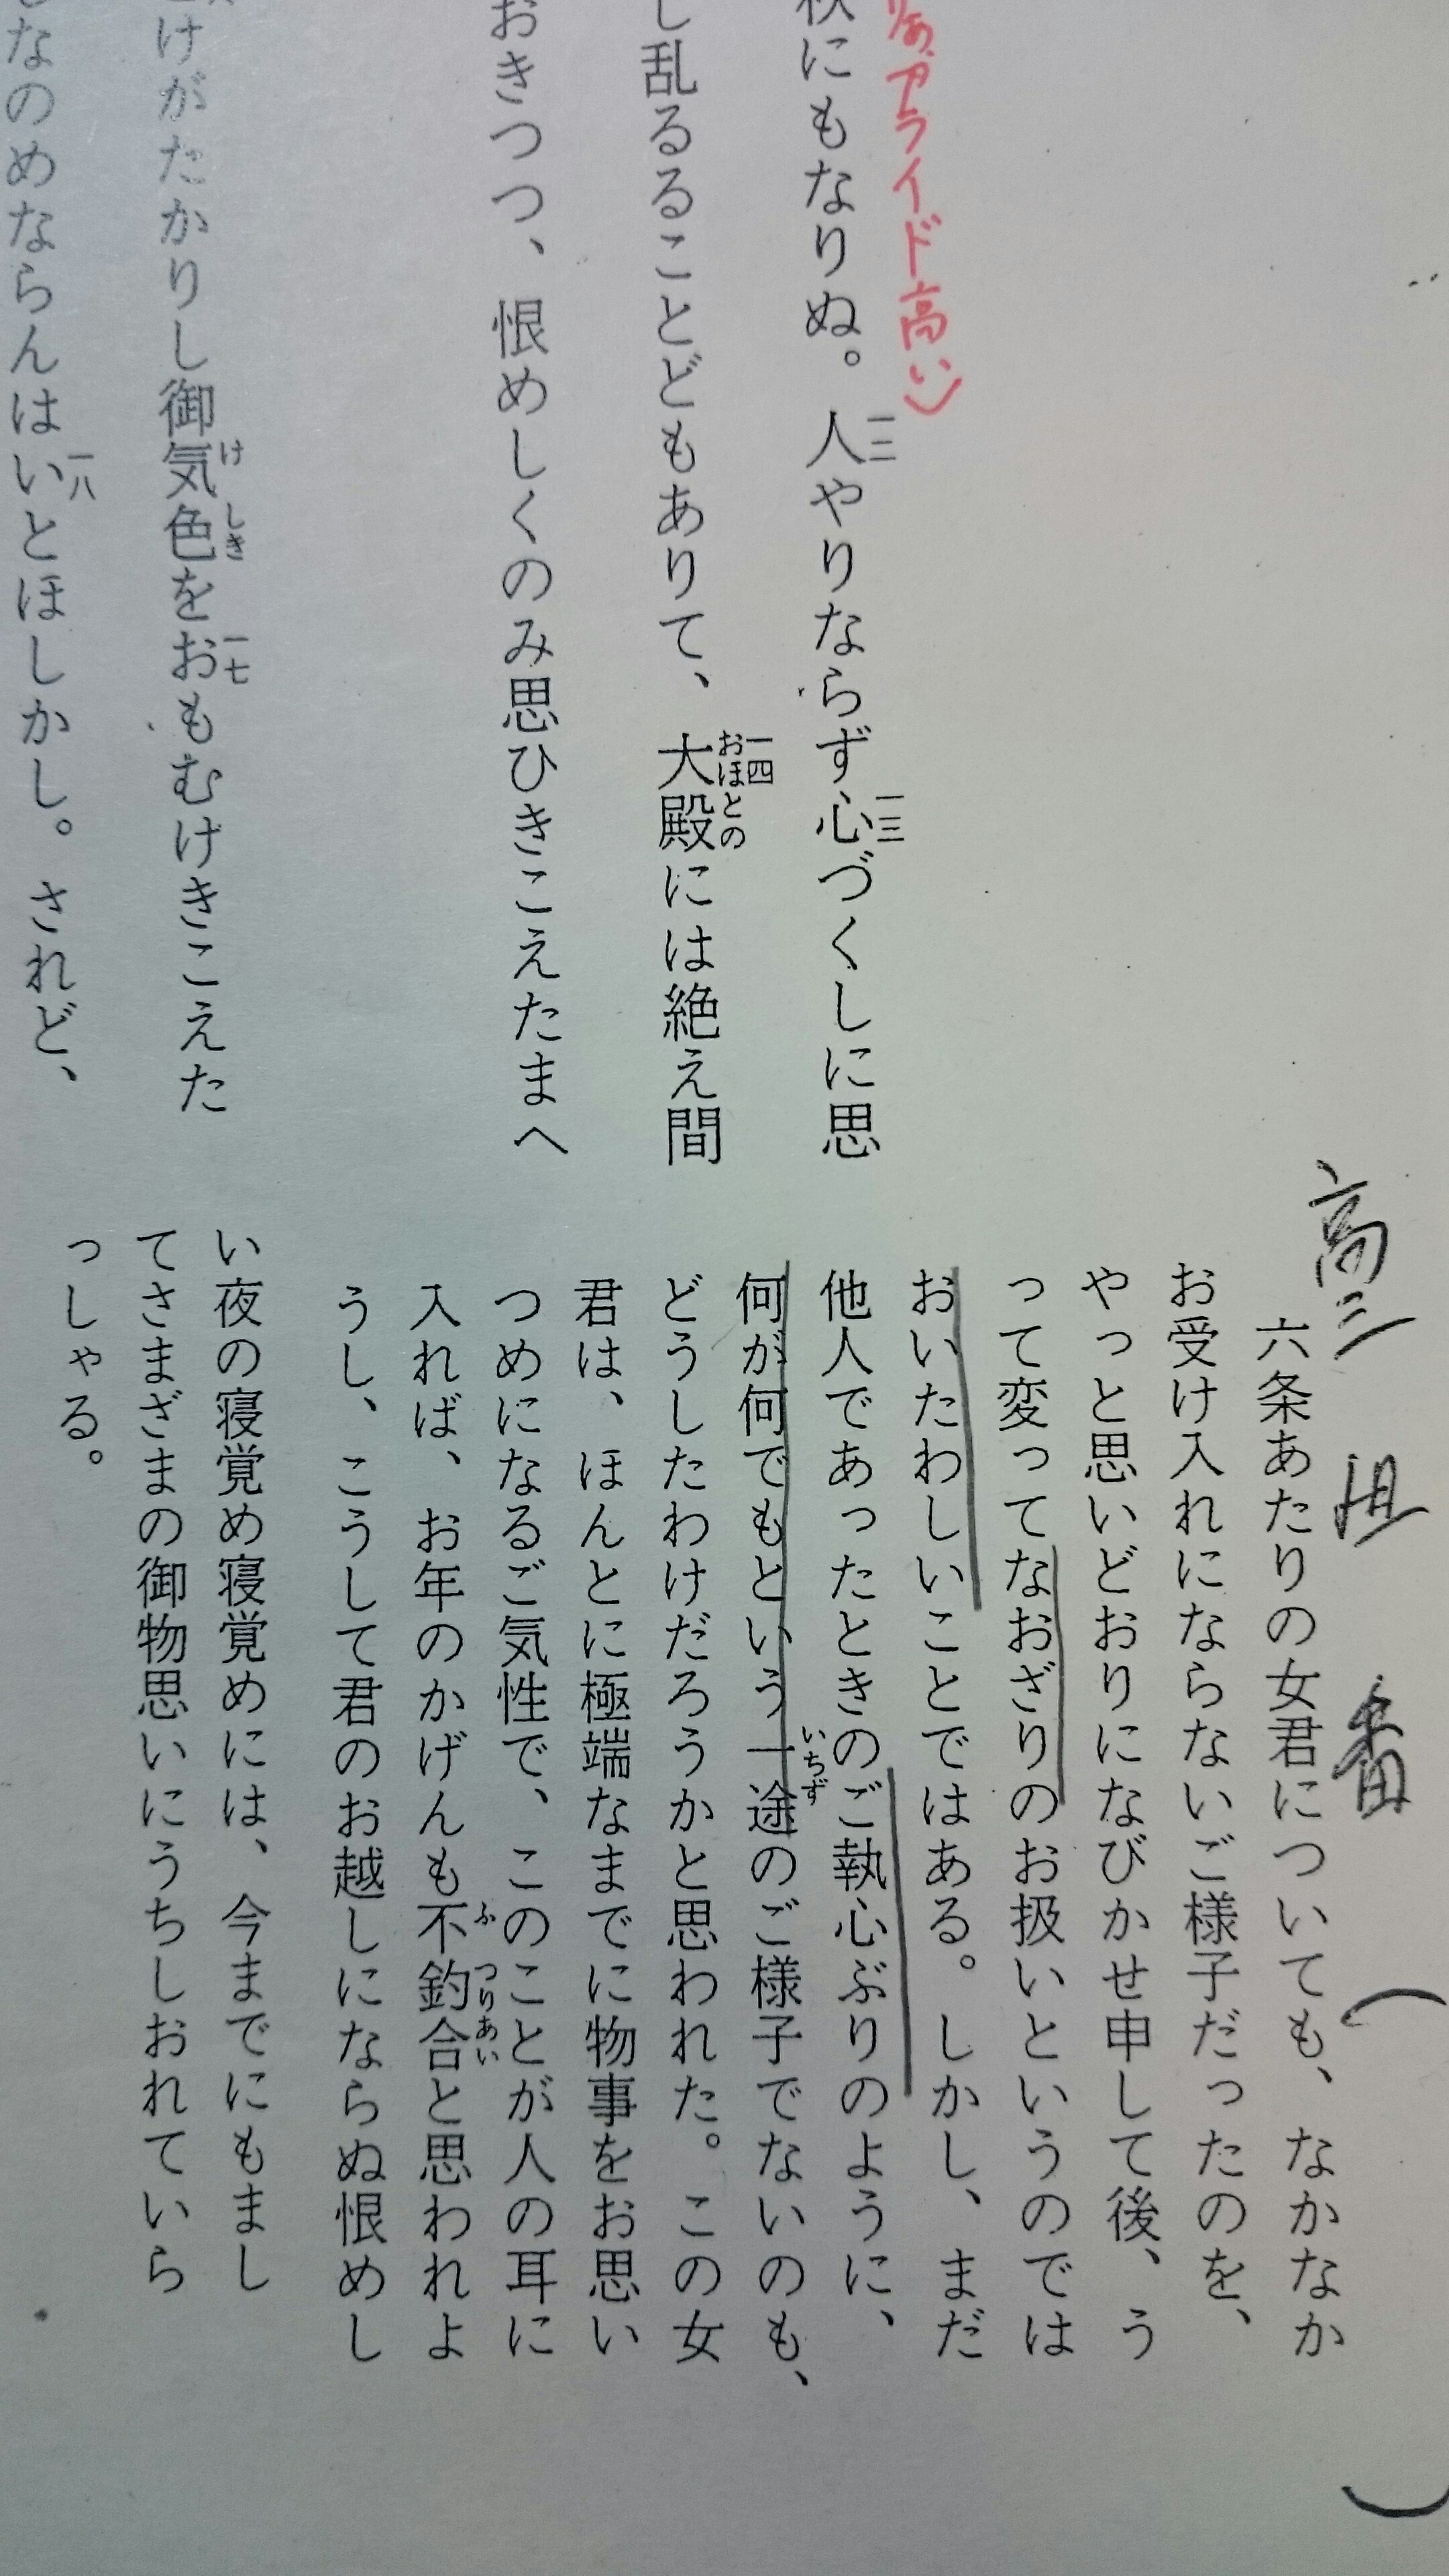 高三 組 番 ( )
プライド高い)
秋にもなりぬ。人やりならず心づくしに思
一二
一三
し乱るることどもありて、大殿には絶え間
おほとの
一四
おきつつ、恨めしくのみ思ひきこえたまへ
けがたかりし御気色をおもむけきこえた
けしき
一七
なのめならんはいとほしかし。されど、
一八
六条あたりの女君についても、なかなか
お受け入れにならないご様子だったのを、
やっと思いどおりになびかせ申して後、う
って変ってなおざりのお扱いというのでは
おいたわしいことではある。しかし、まだ
他人であったときのご執心ぶりのように、
何が何でもという一途のご様子でないのも、
いちず
どうしたわけだろうかと思われた。この女
君は、ほんとに極端なまでに物事をお思い
つめになるご気性で、このことが人の耳に
入れば、お年のかげんも不釣合と思われよ
ふつりあい
うし、こうして君のお越しにならぬ恨めし
い夜の寝覚め寝覚めには、今までにもまし
てさまざまの御物思いにうちしおれていら
っしゃる。